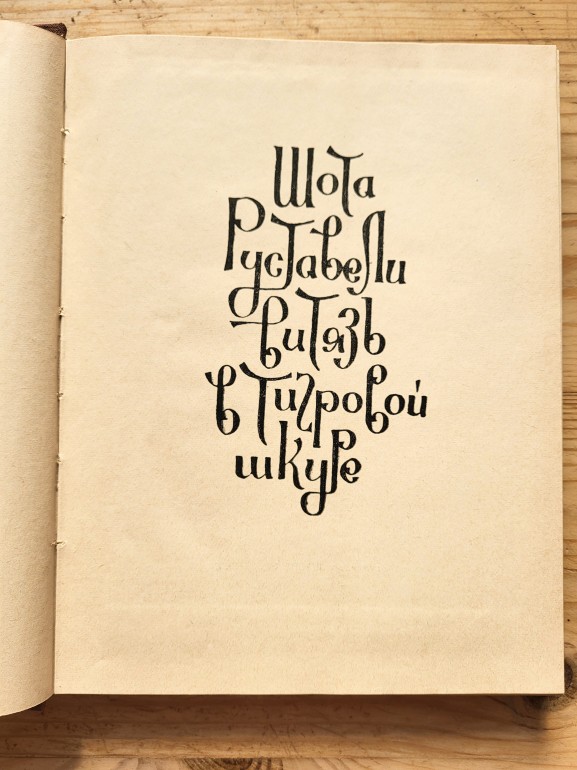 Шота
Руставели
витязь
в тигровой
шкуре